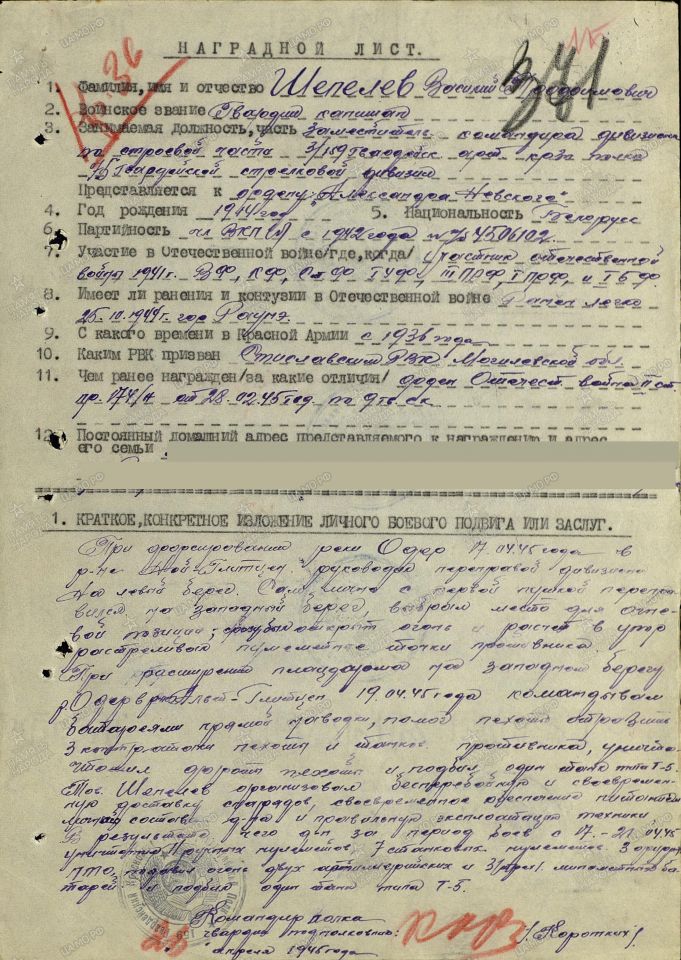 НАГРАДНОЙ ЛИСТ.
1. Фамилия, имя и отчество Шепелев Василий
2. Воинское звание Гвардии капитан
3. Занимаемая должность, часть Заместитель командира дивизиона
по строевой части 3/159 Гвардейск арт. полка
75 Гвардейской стрелковой дивизии
Представляется к ордену "Александра Невского"
4. Год рождения 1914 год 5. Национальность Белорус
6. Партийность чл ВКП(б) с 1942 года № 4506102
7. Участие в Отечественной войне/где, когда/ участник отечественной
войны 1941г.
8. Имеет ли ранения и контузии в Отечественной войне Ранен легко
25.10.1944г.
9. С какого времени в Красной Армии с 1936 года
10. Каким РВК призван РВК Могилевской обл.
11. Чем ранее награжден/за какие отличия/ орден Отечест. война II ст.
пр. 074/н от 28.02.45 год
12. Постоянный домашний адрес представляемого к награждению и адрес
его семьи
1. КРАТКОЕ, КОНКРЕТНОЕ ИЗЛОЖЕНИЕ ЛИЧНОГО БОЕВОГО ПОДВИГА ИЛИ ЗАСЛУГ.
При форсировании реки Одер 17.04.45 года в
р-не руководил переправой дивизиона
на левый берег. Сам лично с первой пушкой перепра
вился на западный берег, выбрал место для огне-
вой позиции; открыт огонь и расчет в упор
расстреливал пулеметные точки противника.
При расширении плацдарма на западном берегу
р. Одер 19.04.45 года командывал
батареями прямой наводки, помог пехоте отразить
3 контратаки пехоты и танков противника, уничто-
жил до роты пехоты и подбил один танк типа Т-5.
Тов. Шепелев организовал бесперебойную и своевремен-
ную доставку снарядов, своевременное обеспечение питанием
личный состав д-на и правильную эксплоатацию техники.
В результате чего д-н за период боев с 17.-21.04.45
уничтожил 11 ручных пулеметов, 7 станковых пулеметов. 3 орудия
ПТО, подавил огонь двух артиллерийских и 3 минометных ба-
тарей и подбил один танк типа Т-5.
Командир полка
гвардии подполковник /Коротких/
апреля 1945 года